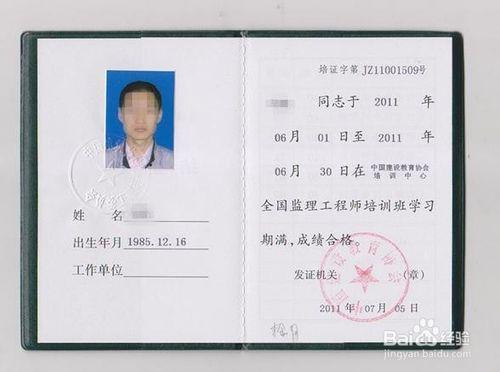 姓 名
出生年月 1985.12.16
工作单位
培证字第 JZ11001509号
同志于 2011 年
06 月 01 日至 2011 年
06 月 30 日在 中国建设教育协会培训中心
全国监理工程师培训班学习
期满,成绩合格。
发证机关 (章)
2011 年 07 月 05 日
Baidu经验
jingyan.baidu.com